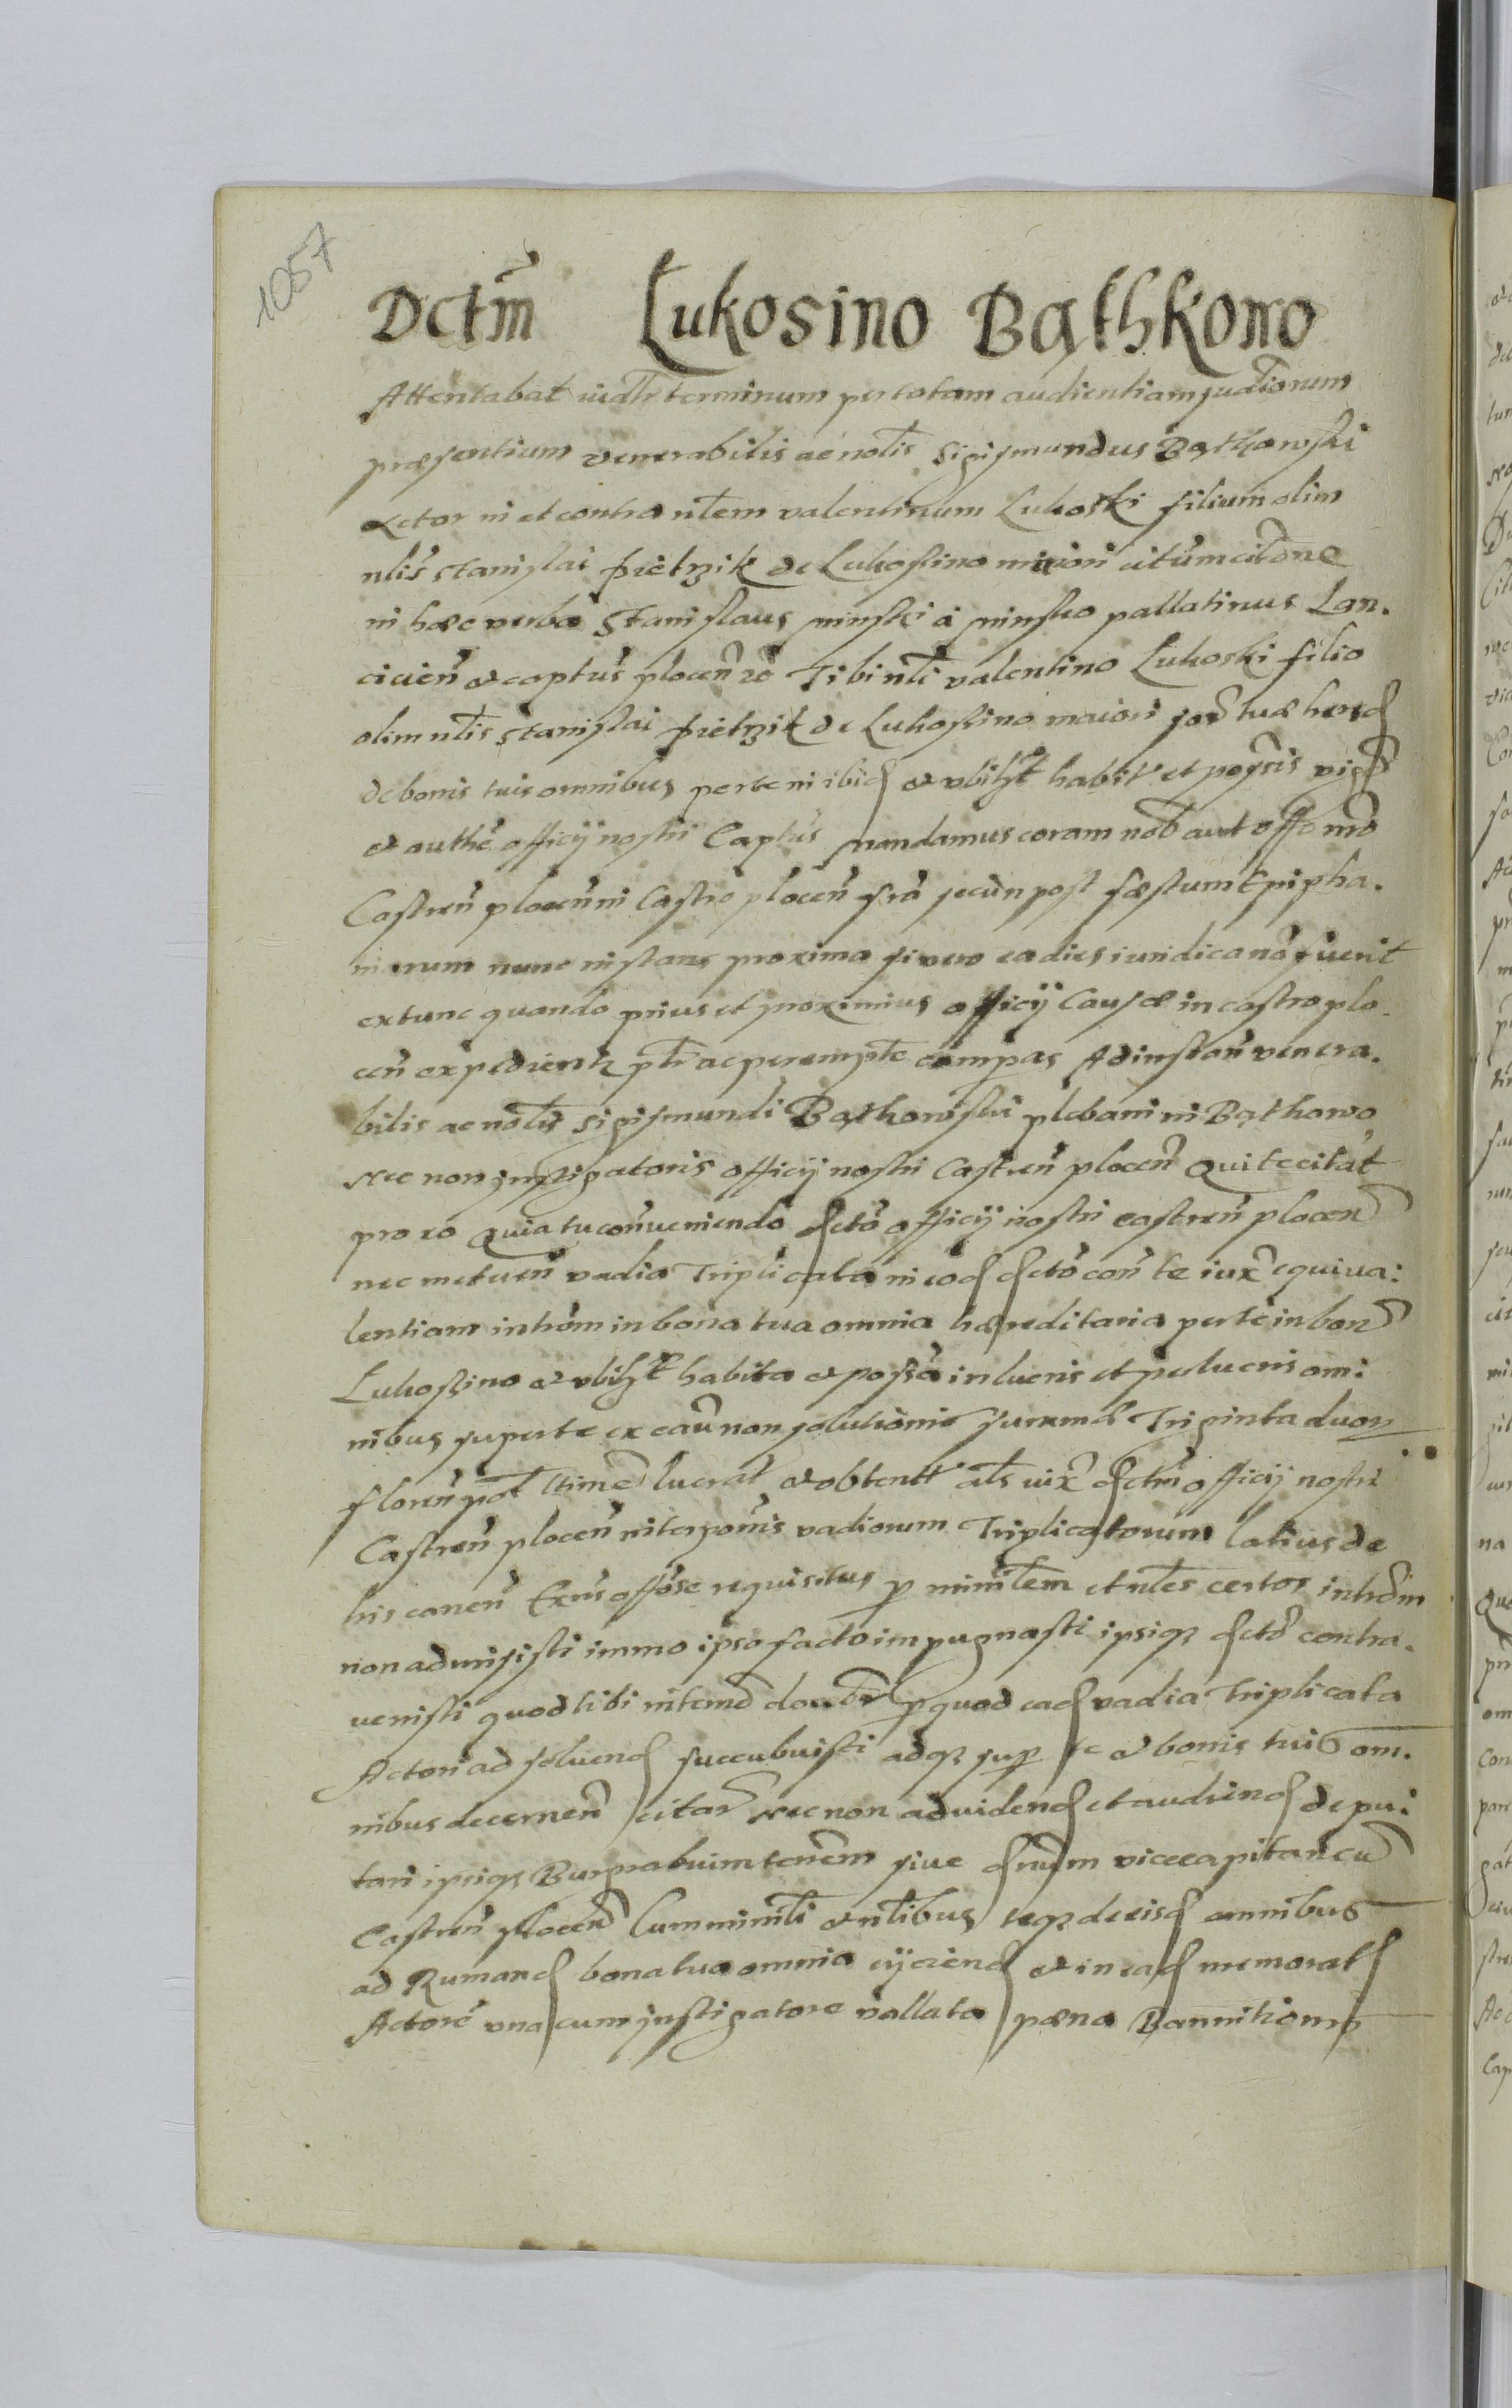 1057
Dctm̃ Lukosino Bąthkowo
Attentabat iudlr̃ terminum per totam audientiam judiciorum
præsentium venerabilis ac nolis̃ Sigismundus Bąthkowski
Actor in et contra nlẽm valentinum Lukoski filium olim
nlis̃ Stanislai Pietrzik de Lukossino maiori citũm citõne
in hæc verba Stanislaus Minski a Minsko pallatinus Lan.
ciciens̃ et captus̃ plocen̄ Tibi nlĩ valentino Lukoski filio
olim nlis̃ Stanislai Pietrzik de Lukossino maiori tuæ
de bonis tuis omnibus per te in ibid et vbilzt habit̃ et possr̃is
et authẽ officij nostri Captus̃ mandamus coram nob̃ aut offo nrõ
Castren̄ plocen̄ in Castro plocen̄ frã secũn post fæstum Epipha.
niarum nunc instans proxima si vero ea dies iuridica nõ fuerit
extunc quando prius et proximius officij Causæ in castro plo
cen̄ expedientz ptr̃ ac perempte cõmpas Ad instan̄ venera.
bilis ac nolis̃ Sigismundi Bąthkowski plebani in Bąthkowo
Nec non jnstigatoris officij nostri Castren̄ plocen̄ Qui te citat
pro eo Quia tu con̄veniendo dctõ officij nostri castren̄ plocen̄
nec metuen̄ vadia Triplicata in eod dctõ con̄ te iux̃ equiua:
lentiam intrõm in bona tua omnia hæreditaria per te in bon̄
Lukossino et vbilzt habita et possã in lucris et perlucris om:
nibus super te ex cau̇ non solutionis summæ Triginta duor
floren̄ pol̃ lucrat et obtent als iux̃ dctm̃ officij nostri
Castren̄ plocen̄ interpoñis vadiorum Triplicatorum latius de
his canen̄ offõse requisitus p minlẽm et nlẽs certos intrõm
non admisisti immo ipso facto impugnasti ipsiq dctõ contra.
uenisti quod tibi in termõ docebr̃ p quod ead vadia Triplicata
Actori ad soluend succubuisti adq sup te et bonis tuis om.
nibus decernen̄ citar̃ Nec non ad videnđ et audienđ depu:
tari ipsiq Burgrabium terrẽm siue dnũm vicecapitaneũ
Castren̄ plocen̄ Cum minlĩ et nlĩbus teq de eisd omnibus
ad Rumand bona tua omnia eijciend et in ead memorat
Actorẽ vna cum jnstigatore vallata pæna Bannitionis